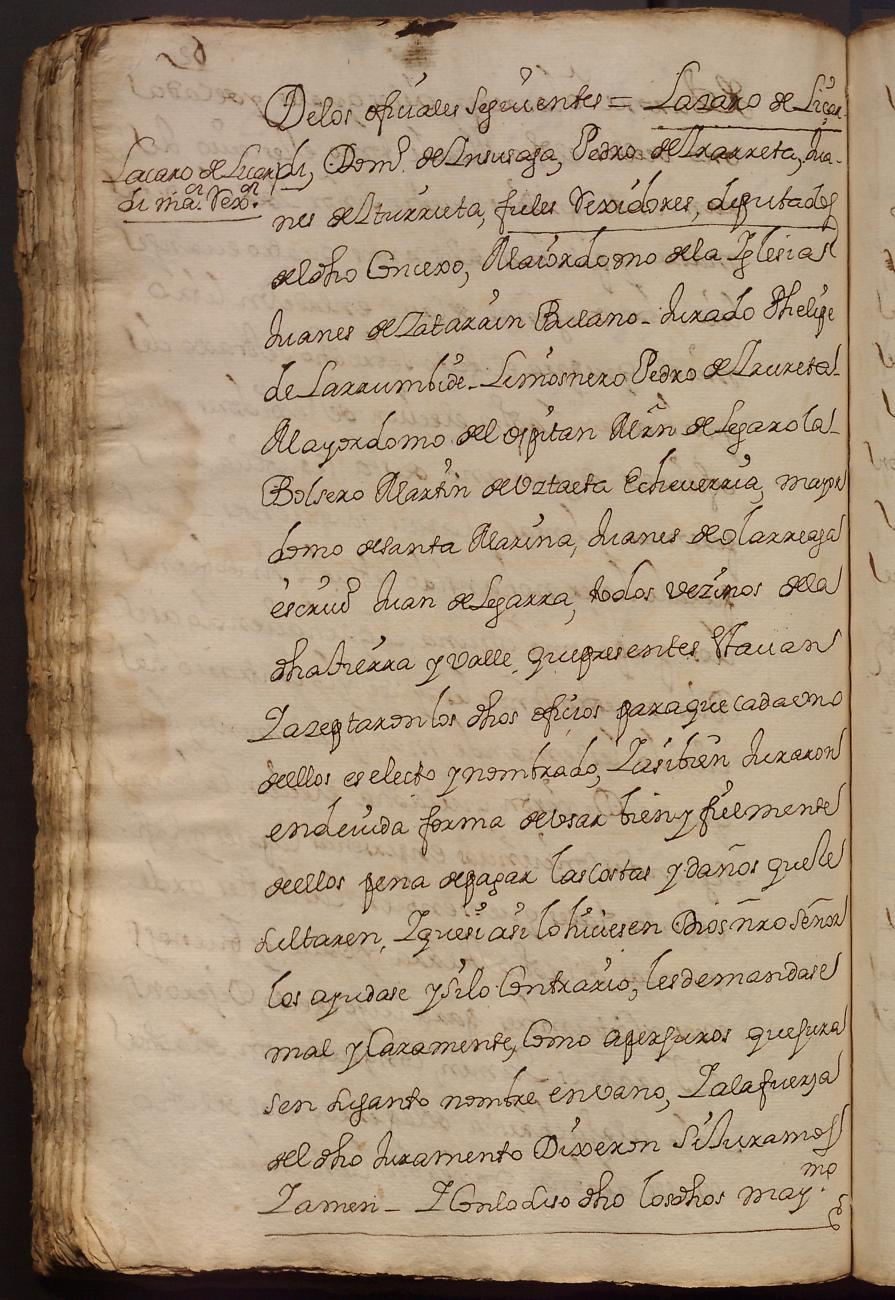 Delos ofiçiales seguientes = Lazaro de Liçar
Lacaro de Liçar
di ma.or Rex.or
di, Dom.o de Insusaga, Pedro de Irarreta, Jua-
nes de Iturrieta, fieles Rexidores, diputados
del dho Concexo, Maiordomo dela Iglesia
Juanes de Zatarain Baclano - Jurado Phelipe
de Larrumbide - Limosnero Pedro de Irureta
Mayordomo del ospitan Mrn de Legarola
Bolsero Martin de Vztaeta Echeverria, mayor
domo desanta Marina, Juanes de Olarreaga
escriu.o Juan de Legarra, todos vezinos dela
dha tierra y valle, que presentes Stauan
Iazeptaron los dhos ofiçios para que cada uno
de ellos es electo y nombrado, Iasibien Juraron
en deuida forma de vsar bien y fielmente
de ellos pena de pagar las costas y daños que Re
sultaren, Iquesi asi lo hiçiesen Dios nro Señor
los ayudase y silo Contrario, les demandase
mal y Caramente, Como aperjuros que jura
sen su santo nombre en vano, Iala fuerza
del dho Juramento Dixeron Si Juramos
Iamen - I Conlo suso dho los dhos may.mo